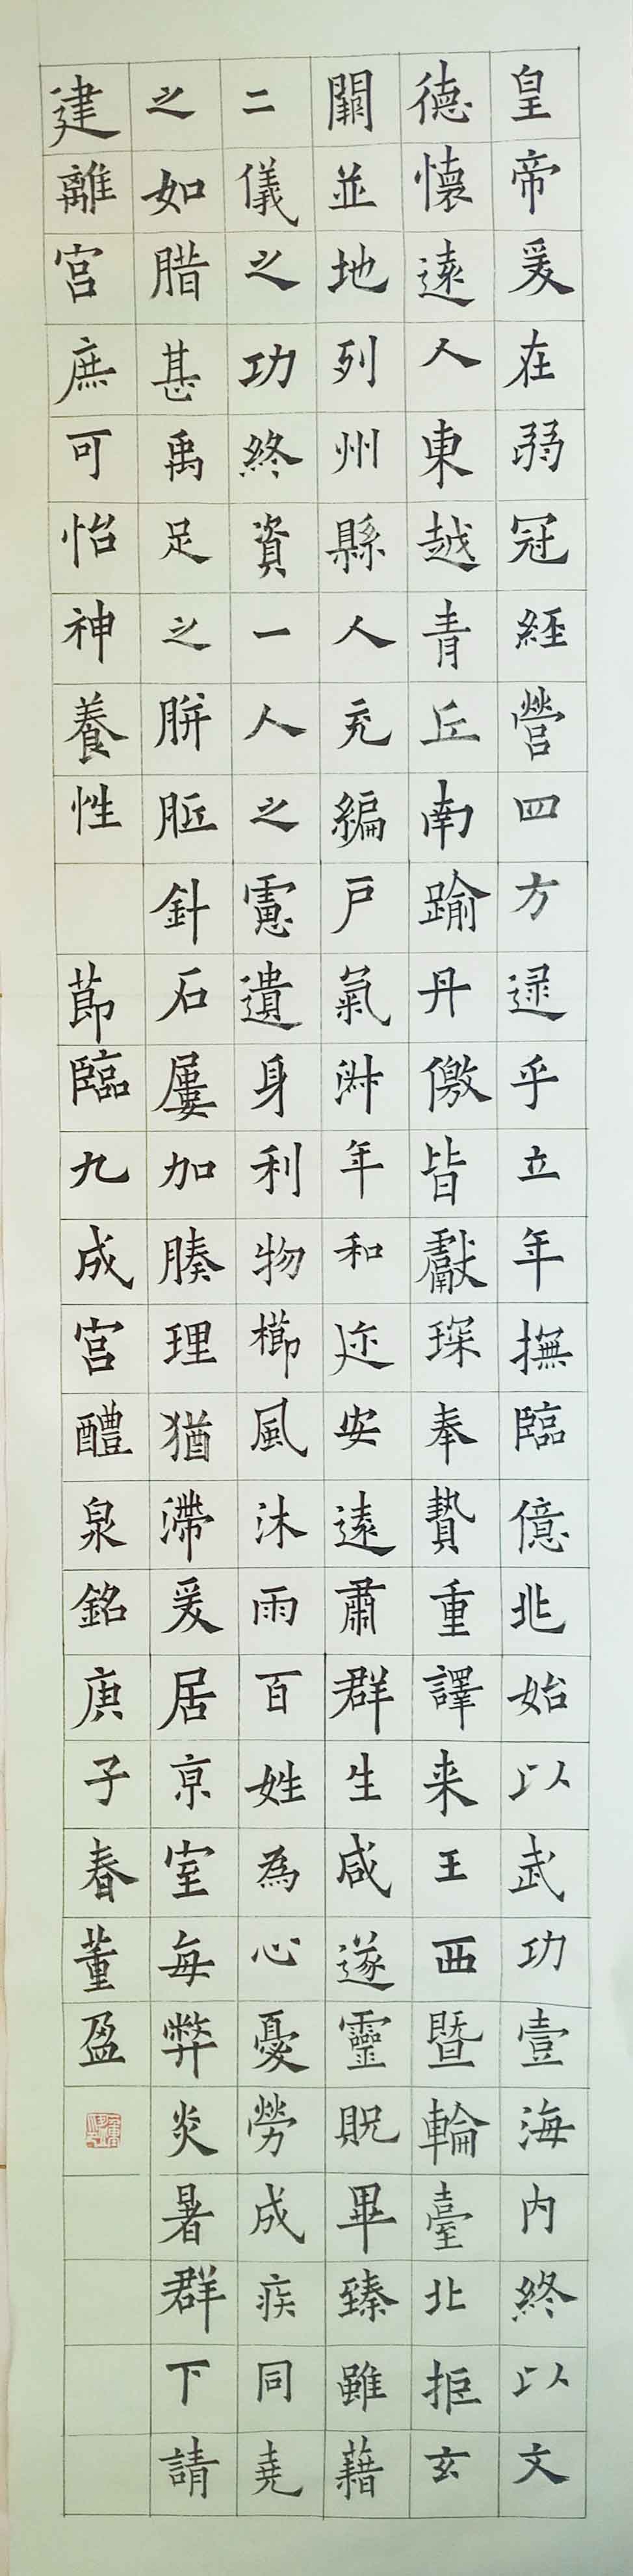 皇帝爰在弱冠經營四方逯乎立年撫臨億兆始以武功壹海內終以文
德懷遠人東越青丘南踰丹儌皆獻琛奉贄重譯来王西暨輪臺北拒玄
闕並地列州縣人充編戶氣淑年和迩安遠肅群生咸遂靈貺畢臻雖藉
二儀之功終資一人之慮遺身利物櫛風沐雨百姓為心憂勞成疾同堯
之如腊甚禹足之胼胝針石屢加腠理猶滯爰居京室每弊炎暑群下請
建離宮庶可怡神養性 節臨九成宮醴泉銘庚子春董盈